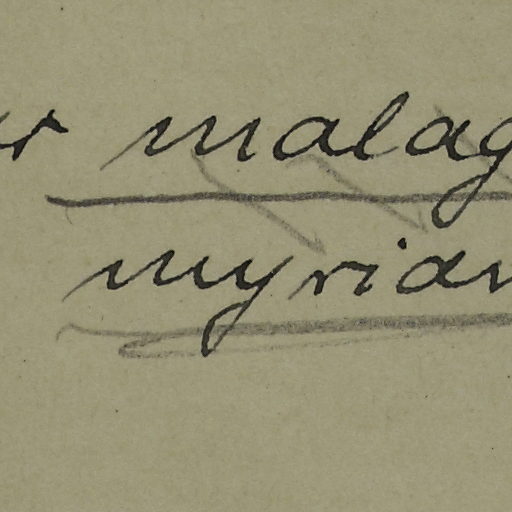 malag
myrian